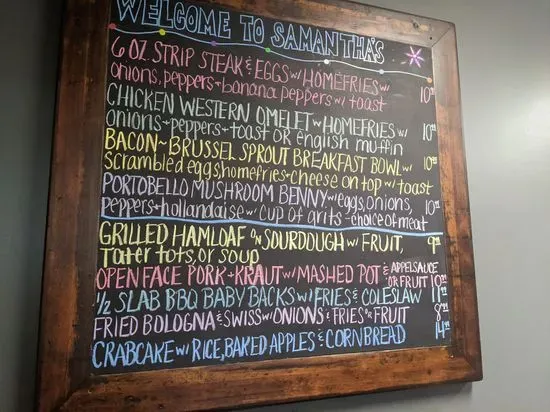 WELCOME TO SAMANTHA'S
6 OZ. STRIP STEAK & EGGS w/ HOMEFRIES w/
onions, peppers + banana peppers w/ toast 10
CHICKEN WESTERN OMELET w/ HOMEFRIES w/
onions + peppers + toast OR english muffin 10
BACON ~ BRUSSEL SPROUT BREAKFAST BOWL w/ 10
scrambled eggs, homefries + cheese on top w/ toast
PORTOBELLO MUSHROOM BENNY w/ eggs, onions,
peppers + hollandaise w/ cup of grits - choice of meat 10
GRILLED HAMLOAF ON SOURDOUGH w/ FRUIT, 9
Tater tots, or soup
OPEN FACE PORK + KRAUT w/ MASHED POT & APPLESAUCE OR FRUIT 10
1/2 SLAB BBQ BABY BACKS w/ FRIES & COLESLAW 11
FRIED BOLOGNA & SWISS w/ ONIONS & FRIES OR FRUIT 8
CRABCAKE w/ RICE, BAKED APPLES & CORNBREAD 14